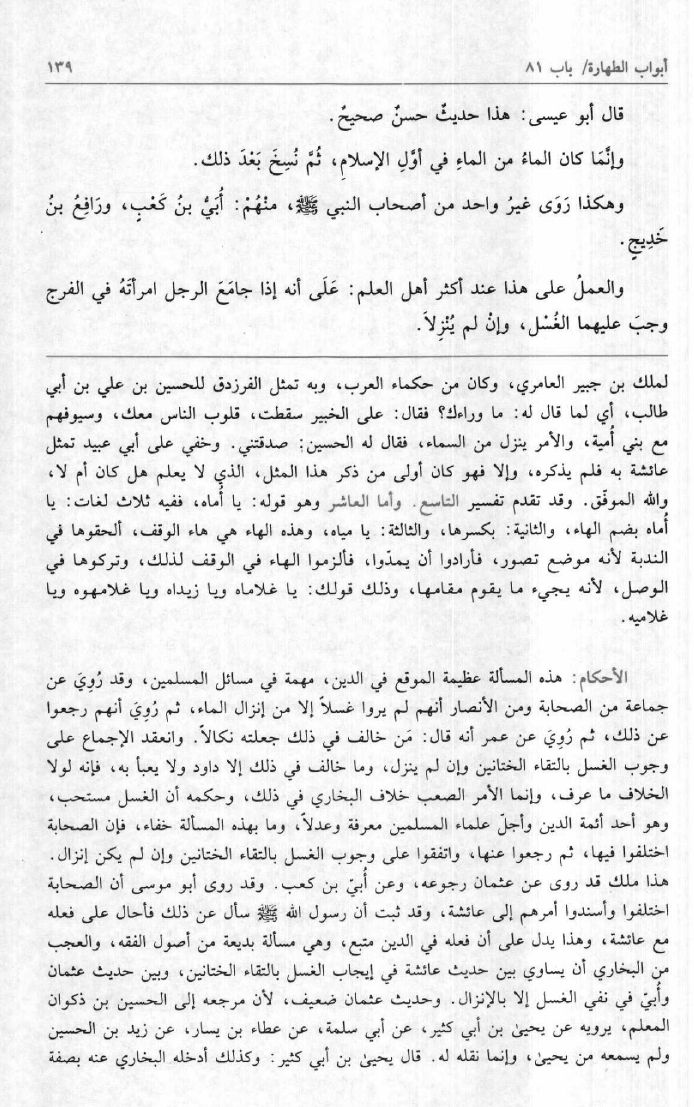 أبواب الطهارة/ باب ٨١ ١٣٩
قال أبو عيسى: هذا حديثٌ حسنٌ صحيحٌ.
وإنَّمَا كان الماءُ من الماءِ في أوَّلِ الإسلامِ، ثُمَّ نُسِخَ بَعْدَ ذلك.
وهكذا رَوَى غيرُ واحد من أصحاب النبي ﷺ، منْهُمْ: أُبَيُّ بنُ كَعْبٍ، ورَافِعُ بنُ
خَدِيجٍ.
والعملُ على هذا عند أكثر أهل العلم: عَلَى أنه إذا جامَعَ الرجل امرأتَهُ في الفرج
وجبَ عليهما الغُسْل، وإنْ لم يُنْزِلاَ.
لملك بن جبير العامري، وكان من حكماء العرب، وبه تمثل الفرزدق للحسين بن علي بن أبي
طالب، أي لما قال له: ما وراءك؟ فقال: على الخبير سقطت، قلوب الناس معك، وسيوفهم
مع بني أُمية، والأمر ينزل من السماء، فقال له الحسين: صدقتني. وخفي على أبي عبيد تمثل
عائشة به فلم يذكره، وإلا فهو كان أولى من ذكر هذا المثل، الذي لا يعلم هل كان أم لا،
والله الموفّق. وقد تقدم تفسير التاسع. وأما العاشر وهو قوله: يا أُماه، ففيه ثلاث لغات: يا
أُماه بضم الهاء، والثانية: بكسرها، والثالثة: يا مياه، وهذه الهاء هي هاء الوقف، ألحقوها في
الندبة لأنه موضع تصور، فأرادوا أن يمدّوا، فألزموا الهاء في الوقف لذلك، وتركوها في
الوصل، لأنه يجيء ما يقوم مقامها، وذلك قولك: يا غلاماه ويا زيداه ويا غلامهوه ويا
غلاميه.
الأحكام: هذه المسألة عظيمة الموقع في الدين، مهمة في مسائل المسلمين، وقد رُوِيَ عن
جماعة من الصحابة ومن الأنصار أنهم لم يروا غسلاً إلا من إنزال الماء، ثم رُوِيَ أنهم رجعوا
عن ذلك، ثم رُوِيَ عن عمر أنه قال: مَن خالف في ذلك جعلته نكالاً. وانعقد الإجماع على
وجوب الغسل بالتقاء الختانين وإن لم ينزل، وما خالف في ذلك إلا داود ولا يعبأ به، فإنه لولا
الخلاف ما عرف، وإنما الأمر الصعب خلاف البخاري في ذلك، وحكمه أن الغسل مستحب،
وهو أحد أئمة الدين وأجلّ علماء المسلمين معرفة وعدلاً، وما بهذه المسألة خفاء، فإن الصحابة
اختلفوا فيها، ثم رجعوا عنها، واتفقوا على وجوب الغسل بالتقاء الختانين وإن لم يكن إنزال.
هذا ملك قد روى عن عثمان رجوعه، وعن أُبيّ بن كعب. وقد روى أبو موسى أن الصحابة
اختلفوا وأسندوا أمرهم إلى عائشة، وقد ثبت أن رسول الله ﷺ سأل عن ذلك فأحال على فعله
مع عائشة، وهذا يدل على أن فعله في الدين متبع، وهي مسألة بديعة من أصول الفقه، والعجب
من البخاري أن يساوي بين حديث عائشة في إيجاب الغسل بالتقاء الختانين، وبين حديث عثمان
وأُبيّ في نفي الغسل إلا بالإنزال. وحديث عثمان ضعيف، لأن مرجعه إلى الحسين بن ذكوان
المعلم، يرويه عن يحيىٰ بن أبي كثير، عن أبي سلمة، عن عطاء بن يسار، عن زيد بن الحسين
ولم يسمعه من يحيىٰ، وإنما نقله له. قال يحيىٰ بن أبي كثير: وكذلك أدخله البخاري عنه بصفة